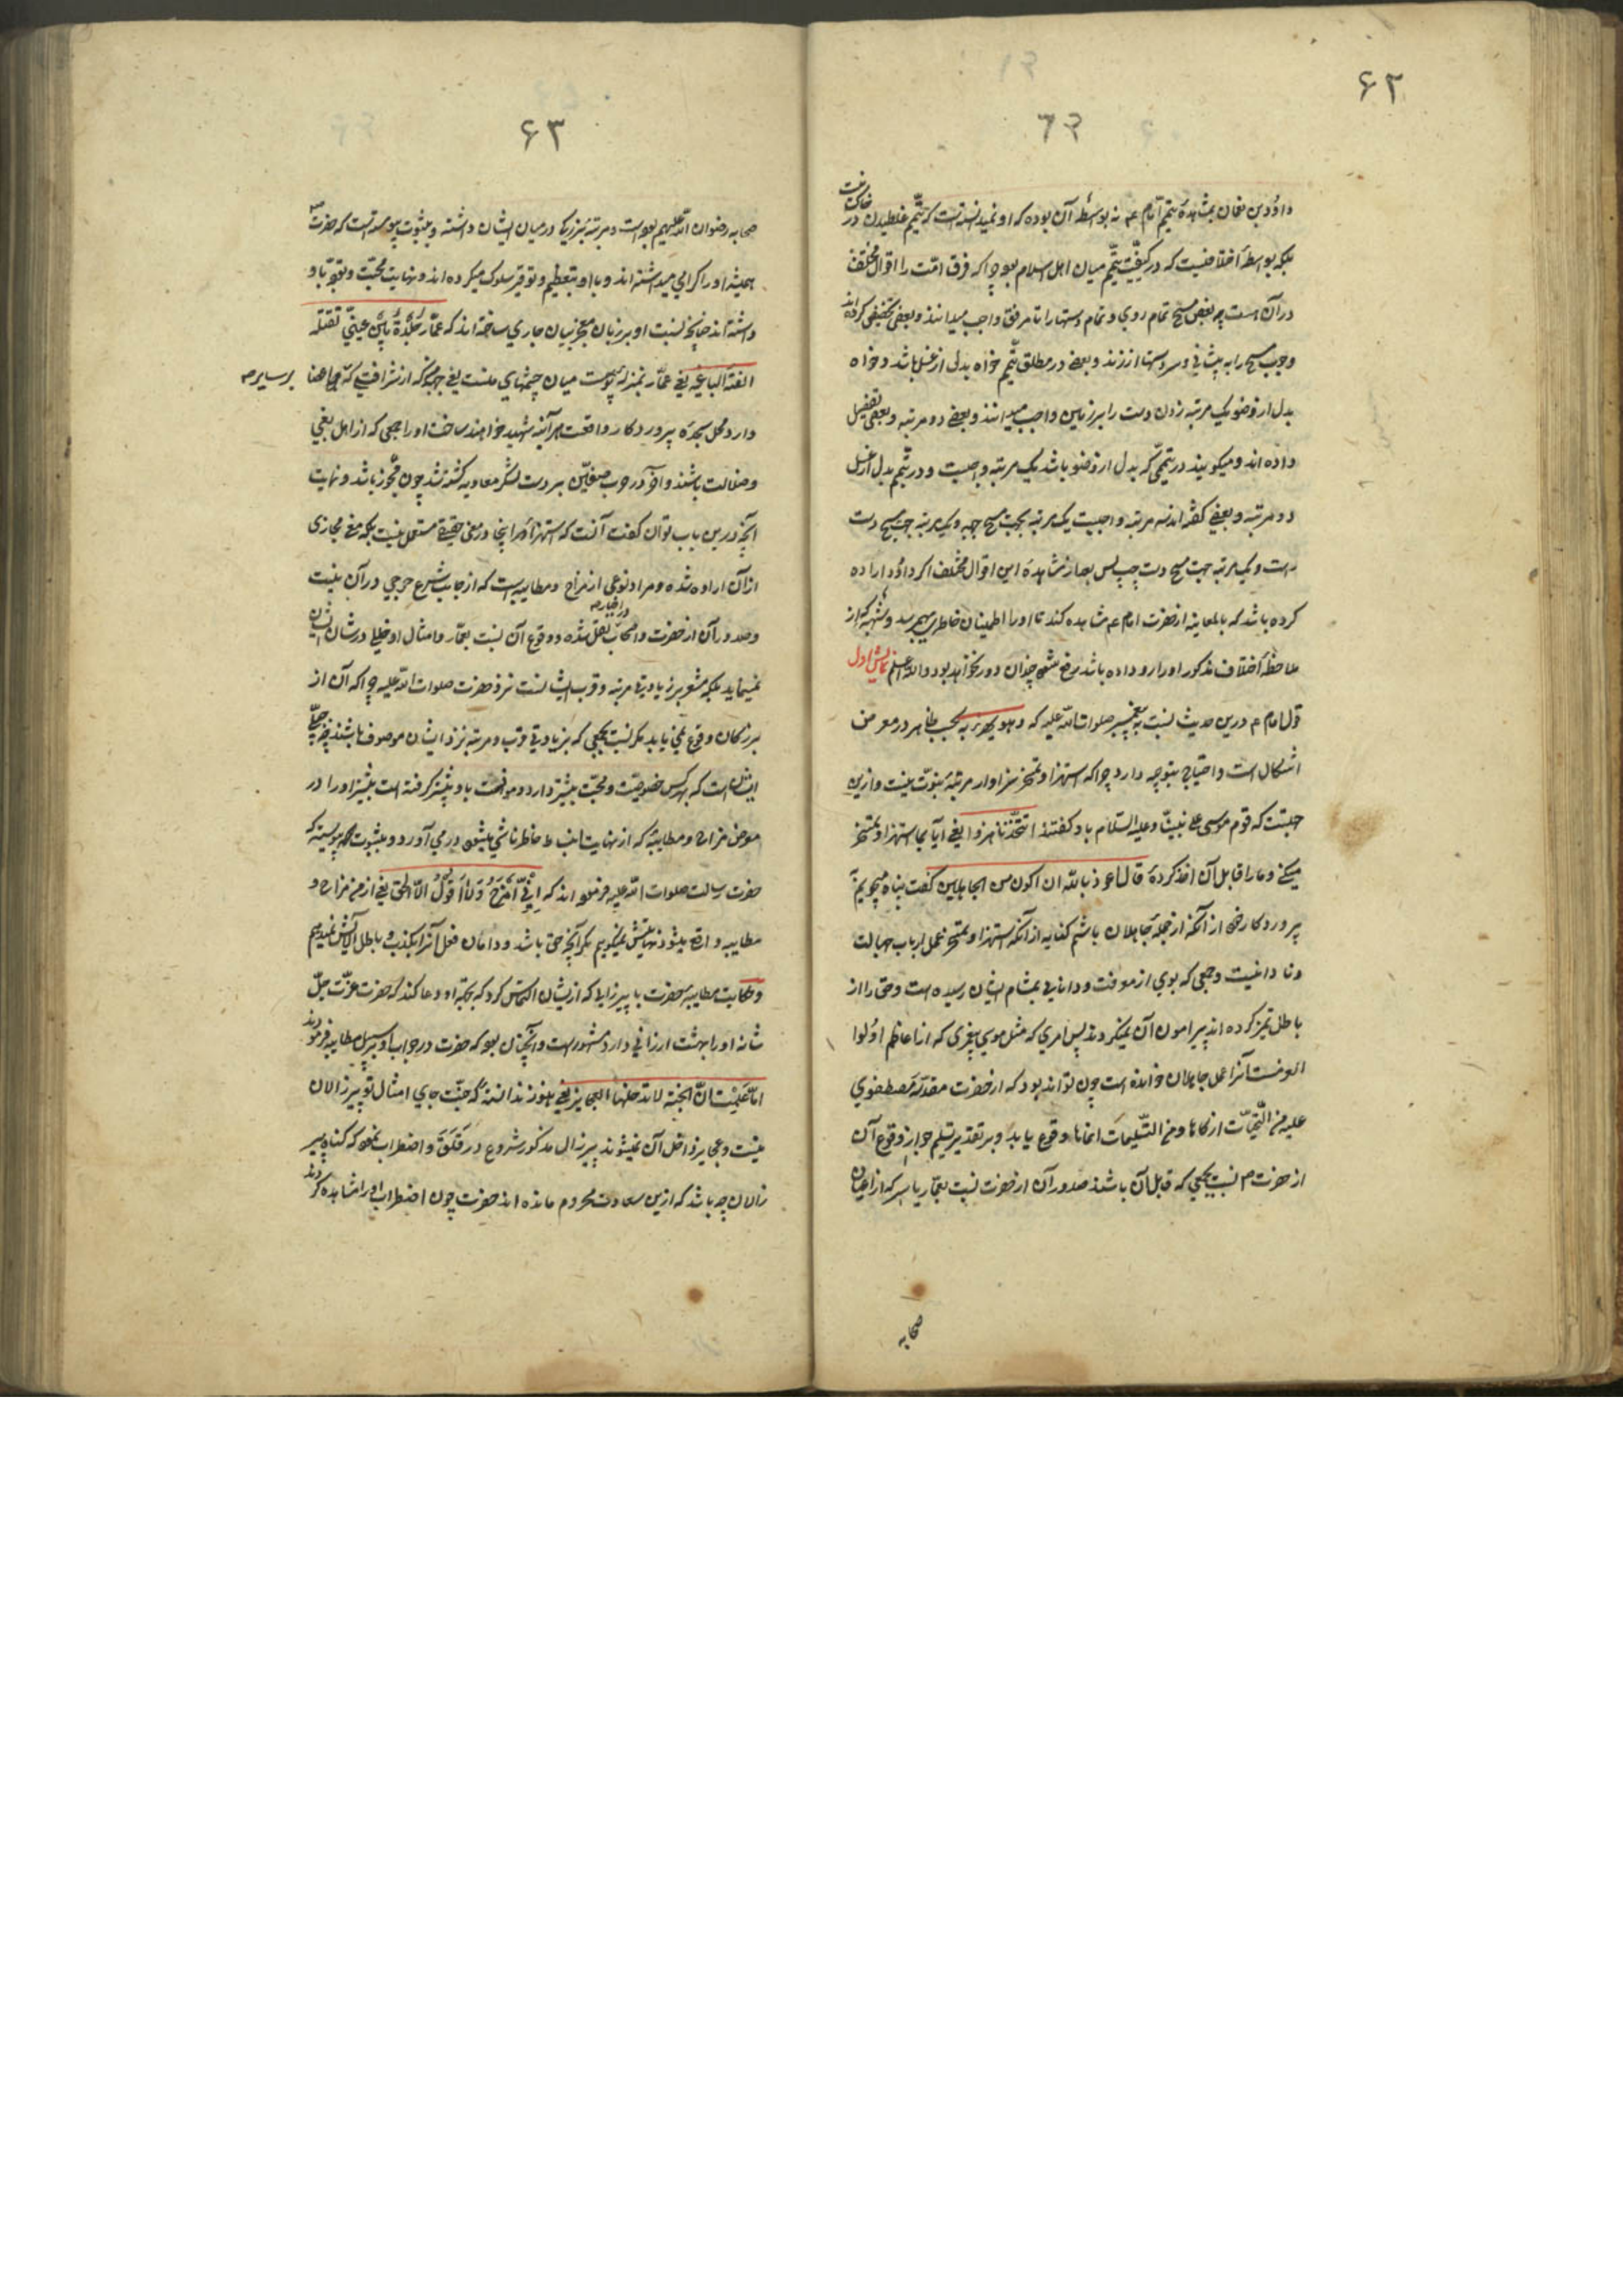 ۶۲
داود بن نعمان بمشاهدهٔ تیمم امام عم نه بواسطه آن بوده که او نمیدانسته است که تیمم غلطیدن در خاکست
بلکه بواسطهٔ اختلافیست که در کیفیت تیمم میان اهل اسلام بوده چرا که فرق امت را اقوال مختلف
در آن هست چه بعضی مسح تمام روی و تمام دستها را تا مرفق واجب میدانند و بعضی تخفیفی کرده‌اند
وجوب مسح را به پیشانی و سر دستها ارزند و بعضی در مطلق تیمم خواه بدل از غسل باشد و خواه
بدل از وضو یک مرتبه زدن دست را بر زمین واجب میدانند و بعضی دو مرتبه و بعضی تفصیل
داده اند و میگویند در تیممی که بدل از وضو باشد یک مرتبه واجبست و در تیمم بدل از غسل
دو مرتبه و بعضی گفته‌اند سه مرتبه واجبست یک مرتبه بجهت مسح جبهه و یک مرتبه جهت مسح دست
راست و یک مرتبه جهت مسح دست چپ پس بعد از مشاهدهٔ این اقوال مختلف اگر داود اراده
کرده باشد که بالمعاینه از حضرت امام عم مشاهده کند تا او را اطمینان خاطر بهم رسد و شبهه که از
ملاحظهٔ اختلاف مذکور او را رو داده باشد مرتفع شود چندان دور نخواهد بود والله اعلم نمایش اول
قول امام عم درین حدیث نسبت به پیغمبر صلوات الله علیه که و هو یهزء به بحسب ظاهر در معرض
اشکال است و احتیاج بتوجه دارد چرا که استهزا و تمسخر سزاوار مرتبهٔ نبوت نیست و ازین
جهتست که قوم موسی علی نبینا و علیه السلام باو گفتند اتتخذنا هزوا یعنی آیا بما استهزا و تمسخر
میکنی و ما را قابل آن اخذ کردهٔ قال اعوذ بالله ان اکون من الجاهلین گفت پناه میجویم به
پروردگار خود از آنکه از جملهٔ جاهلان باشم کنایه از آنکه استهزا و تمسخر عمل ارباب جهالت
و نادانیست و جمعی که بوی از معرفت و دانایی بمشام ایشان رسیده است و حق را از
باطل تمیز کرده اند پیرامون آن نمیگردند پس امری که مثل موسی پیغمبری که از اعاظم اولوا
العزمست آنرا عمل جاهلان خوانده است چون تواند بود که از حضرت مقدسهٔ مصطفوی
علیه من التحیات ازکاها و من التسلیمات انماها وقوع یابد و بر تقدیر تسلیم جواز وقوع آن
از حضرت ص نسبت بجمعی که قابل آن باشند صدور آن از حضرت نسبت بعمار یاسر که از اعیان
صحابه
۶۳
صحابه رضوان الله علیهم بوده است و مرتبهٔ بزرگ در میان ایشان داشته و بثبوت پیوسته است که حضرت ص
همیشه او را گرامی میداشته اند و با او بتعظیم و توقیر سلوک میکرده اند و نهایت محبت و توجه باو
داشته اند چنانچه نسبت او بر زبان معجز بیان جاری ساخته اند که عمار جلدة بین عینی تقتله
الفئة الباغیه یعنی عمار بمنزلهٔ پوست میان چشمهای منست یعنی جبهه که از شرافتی که بر سایر اعضا
دارد محل سجدهٔ پروردگار واقعست هرآینه شهید خواهند ساخت او را جمعی که از اهل بغی
و ضلالت باشند و آخر در حرب صفین بر دست لشکر معاویه کشته شد چون مجوز باشد و نهایت
آنچه درین باب توان گفت آنست که استهزاء در اینجا در معنی حقیقی مستعمل نیست بلکه معنی مجازی
از آن اراده شده و مراد نوعی از مزاح و مطایبه است که از جانب شرع حرجی در آن نیست
و صدور آن از حضرت و اصحاب در اخبار نقل شده و وقوع آن نسبت بعمار و امثال او خللی در شان ایشان
نمینماید بلکه مشعر بر زیادتی مرتبه و قرب ایشانست نزد حضرت صلوات الله علیه چرا که آن از
بزرگان وقوع نمی یابد مگر نسبت بجمعی که بزیادتی قرب و مرتبه نزد ایشان موصوف باشند
ایشانست که بهر کس خصوصیت و محبت بیشتر دارد و موانست باو بیشتر گرفته است بیشتر او را در
معرض مزاح و مطایبه که از نهایت انبساط خاطر ناشی میشود درمی آورد و بثبوت پیوسته که
حضرت رسالت صلوات الله علیه فرموده اند که انی امزح و لا اقول الا الحق یعنی از من مزاح و
مطایبه واقع میشود نهایتش نمیگویم مگر آنچه حق باشد و دامان فعل آنرا بکذب و باطل آلایش نمیدهیم
و حکایت مطایبهٔ حضرت با پیرزالی که ازیشان التماس کرد که بجهة او دعا کند که حضرت عزت جل
شانه او را بهشت ارزانی دارد مشهورست و آنچنان بود که حضرت در جواب او بر سبیل مطایبه فرمودند
اما علمت ان الجنة لا تدخلها العجایز یعنی هنوز ندانستهٔ که جنت جای امثال تو پیر زالان
نیست و عجایز داخل آن نمیشوند پیرزال مذکور شروع در قلق و اضطراب نمود که گناه پیر
زالان چه باشد که ازین سعادت محروم مانده اند حضرت چون اضطراب او را مشاهده کردند